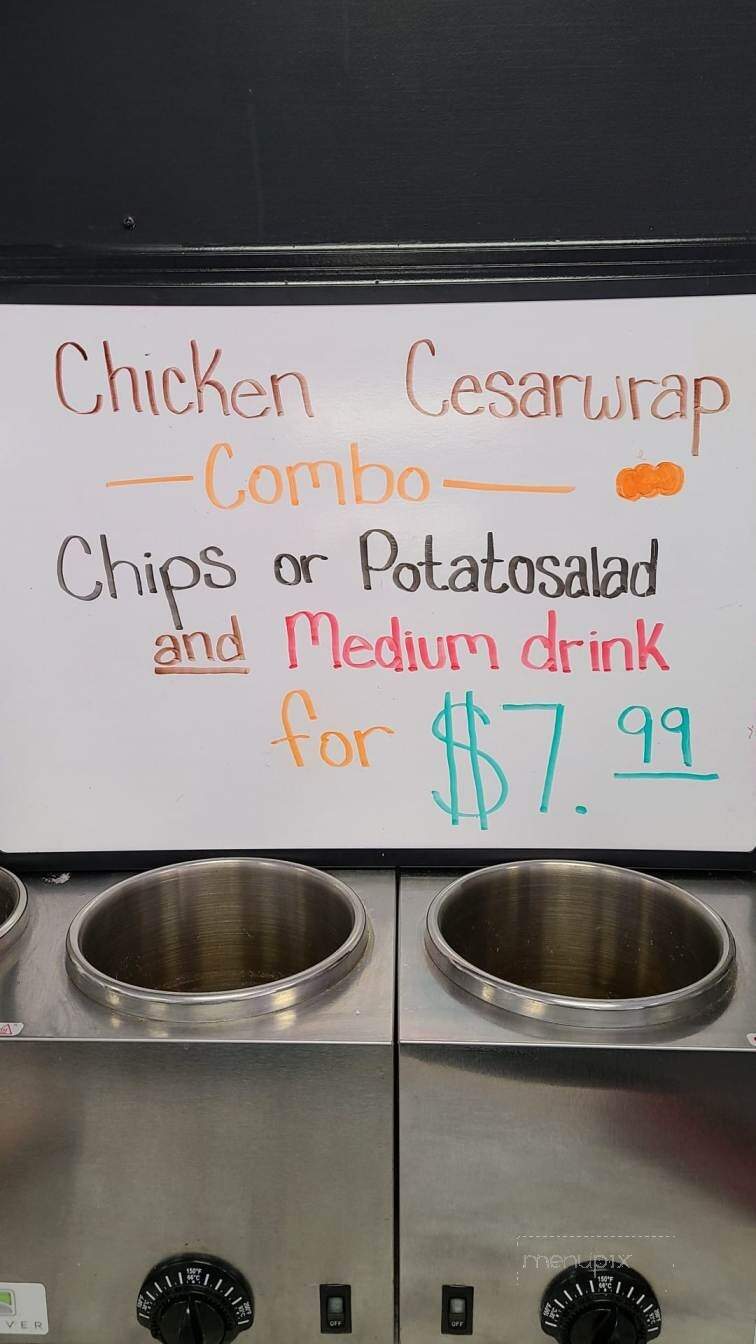 Chicken Cesarwrap
—Combo—
Chips or Potatosalad
and Medium drink
for $7.99
menupix
150°F
66°C
150°F
66°C
OFF
OFF
VER